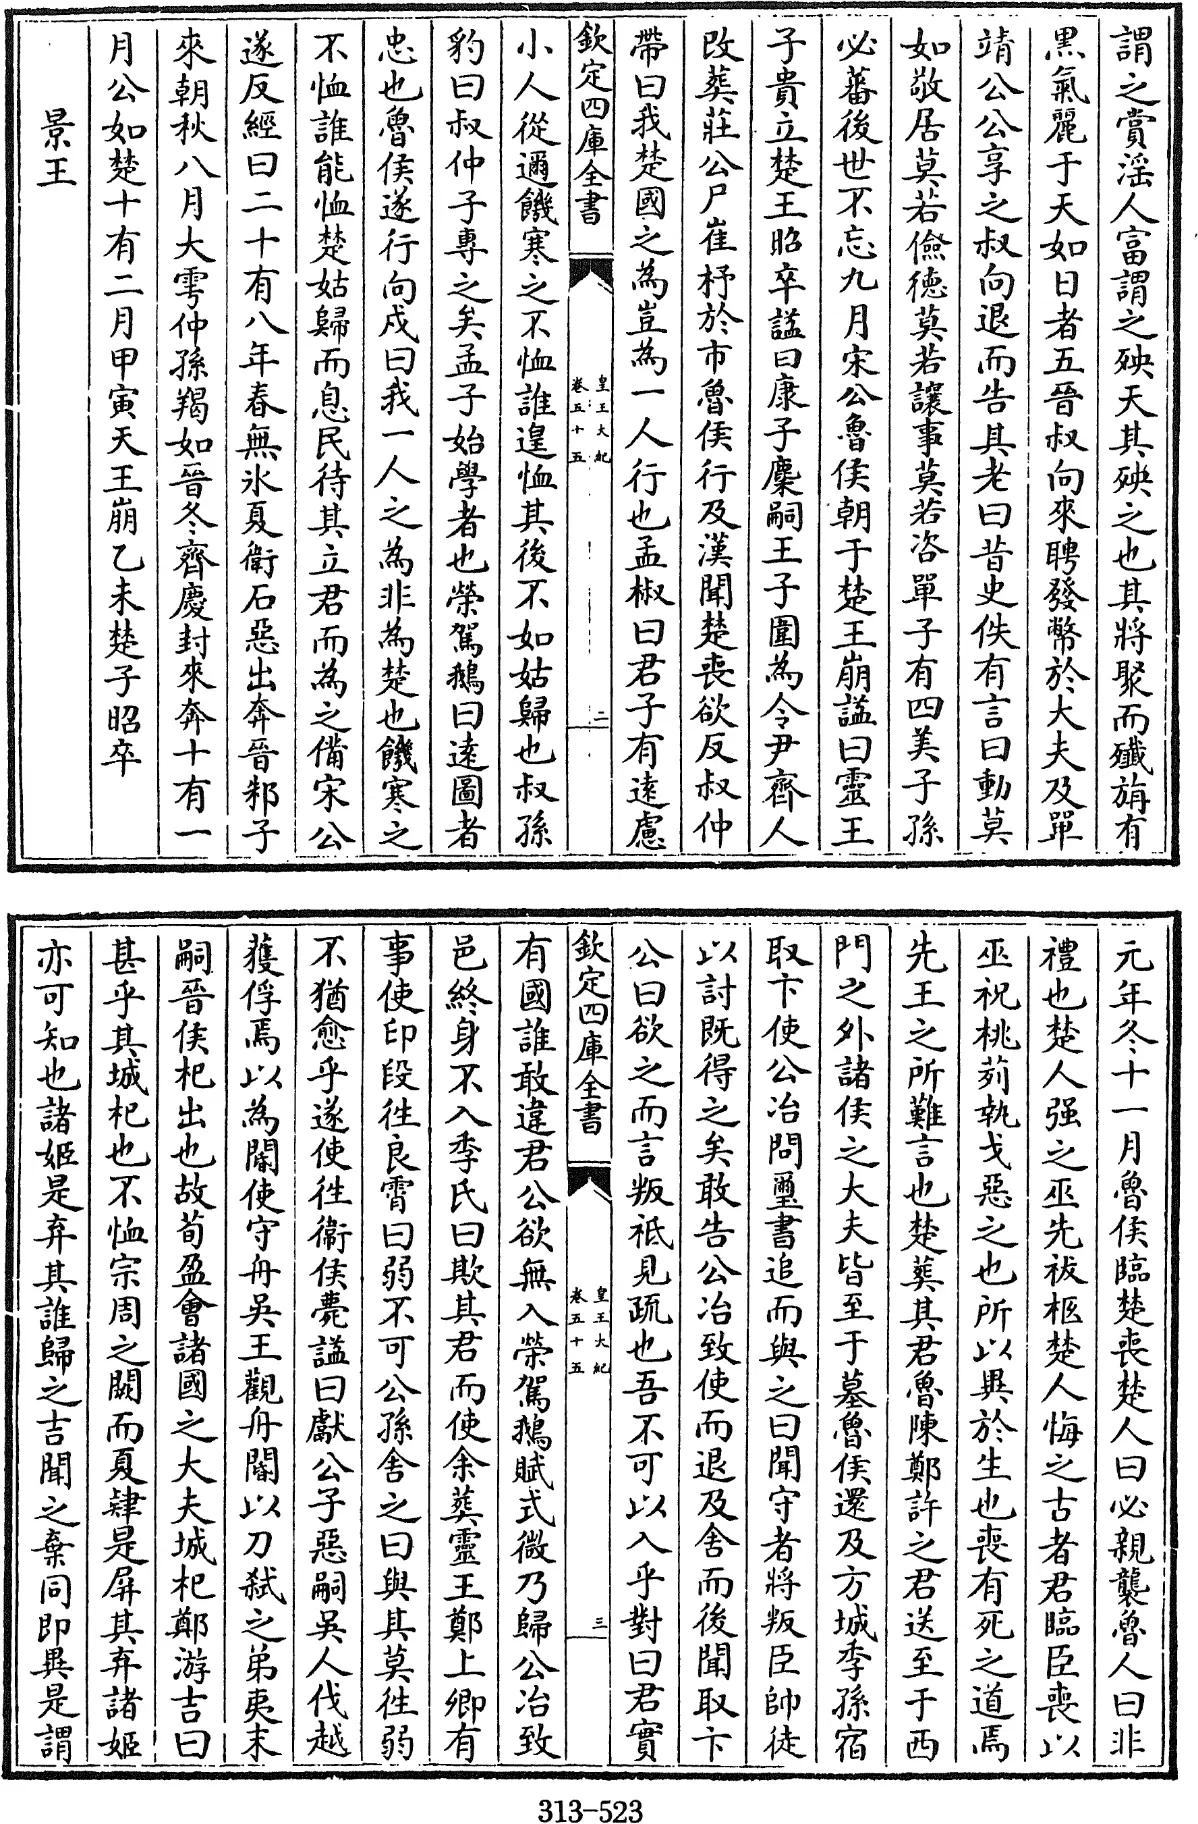 謂之賞淫人富謂之殃天其殃之也其將聚而殲旃有
黒氣麗于天如日者五晉叔向來聘發幣於大夫及單
靖公公享之叔向退而告其老曰昔史佚有言曰動莫
如敬居莫若儉德莫若讓事莫若咨單子有四美子孫
必蕃後世不忘九月宋公魯侯朝于楚王崩諡曰靈王
子貴立楚王昭卒諡曰康子麇嗣王子圍為令尹齊人
改葬莊公尸崔杼於市魯侯行及漢聞楚喪欲反叔仲
帶曰我楚國之為豈為一人行也孟椒曰君子有遠慮
欽定四庫全書
皇王大紀
卷五十五
二
小人從邇饑寒之不恤誰遑恤其後不如姑歸也叔孫
豹曰叔仲子專之矣孟子始學者也榮駕鵝曰遠圖者
忠也魯侯遂行向戌曰我一人之為非為楚也饑寒之
不恤誰能恤楚姑歸而息民待其立君而為之備宋公
遂反經曰二十有八年春無氷夏衛石惡出奔晉邾子
來朝秋八月大雩仲孫羯如晉冬齊慶封來奔十有一
月公如楚十有二月甲寅天王崩乙未楚子昭卒
景王
元年冬十一月魯侯臨楚喪楚人曰必親襲魯人曰非
禮也楚人强之巫先祓柩楚人悔之古者君臨臣喪以
巫祝桃茢執戈惡之也所以異於生也喪有死之道焉
先王之所難言也楚葬其君魯陳鄭許之君送至于西
門之外諸侯之大夫皆至于墓魯侯還及方城季孫宿
取卞使公冶問璽書追而與之曰聞守者將叛臣帥徒
以討既得之矣敢告公冶致使而退及舍而後聞取卞
公曰欲之而言叛祗見疏也吾不可以入乎對曰君實
欽定四庫全書
皇王大紀
卷五十五
三
有國誰敢違君公欲無入榮駕鵝賦式微乃歸公冶致
邑終身不入季氏曰欺其君而使余葬靈王鄭上卿有
事使印段往良霄曰弱不可公孫舍之曰與其莫往弱
不猶愈乎遂使往衛侯薨諡曰獻公子惡嗣吳人伐越
獲俘焉以為閽使守舟吳王觀舟閽以刀弑之弟夷末
嗣晉侯杞出也故荀盈會諸國之大夫城杞鄭游吉曰
甚乎其城杞也不恤宗周之闕而夏肄是屏其弃諸姬
亦可知也諸姬是弃其誰歸之吉聞之棄同即異是謂
313-523